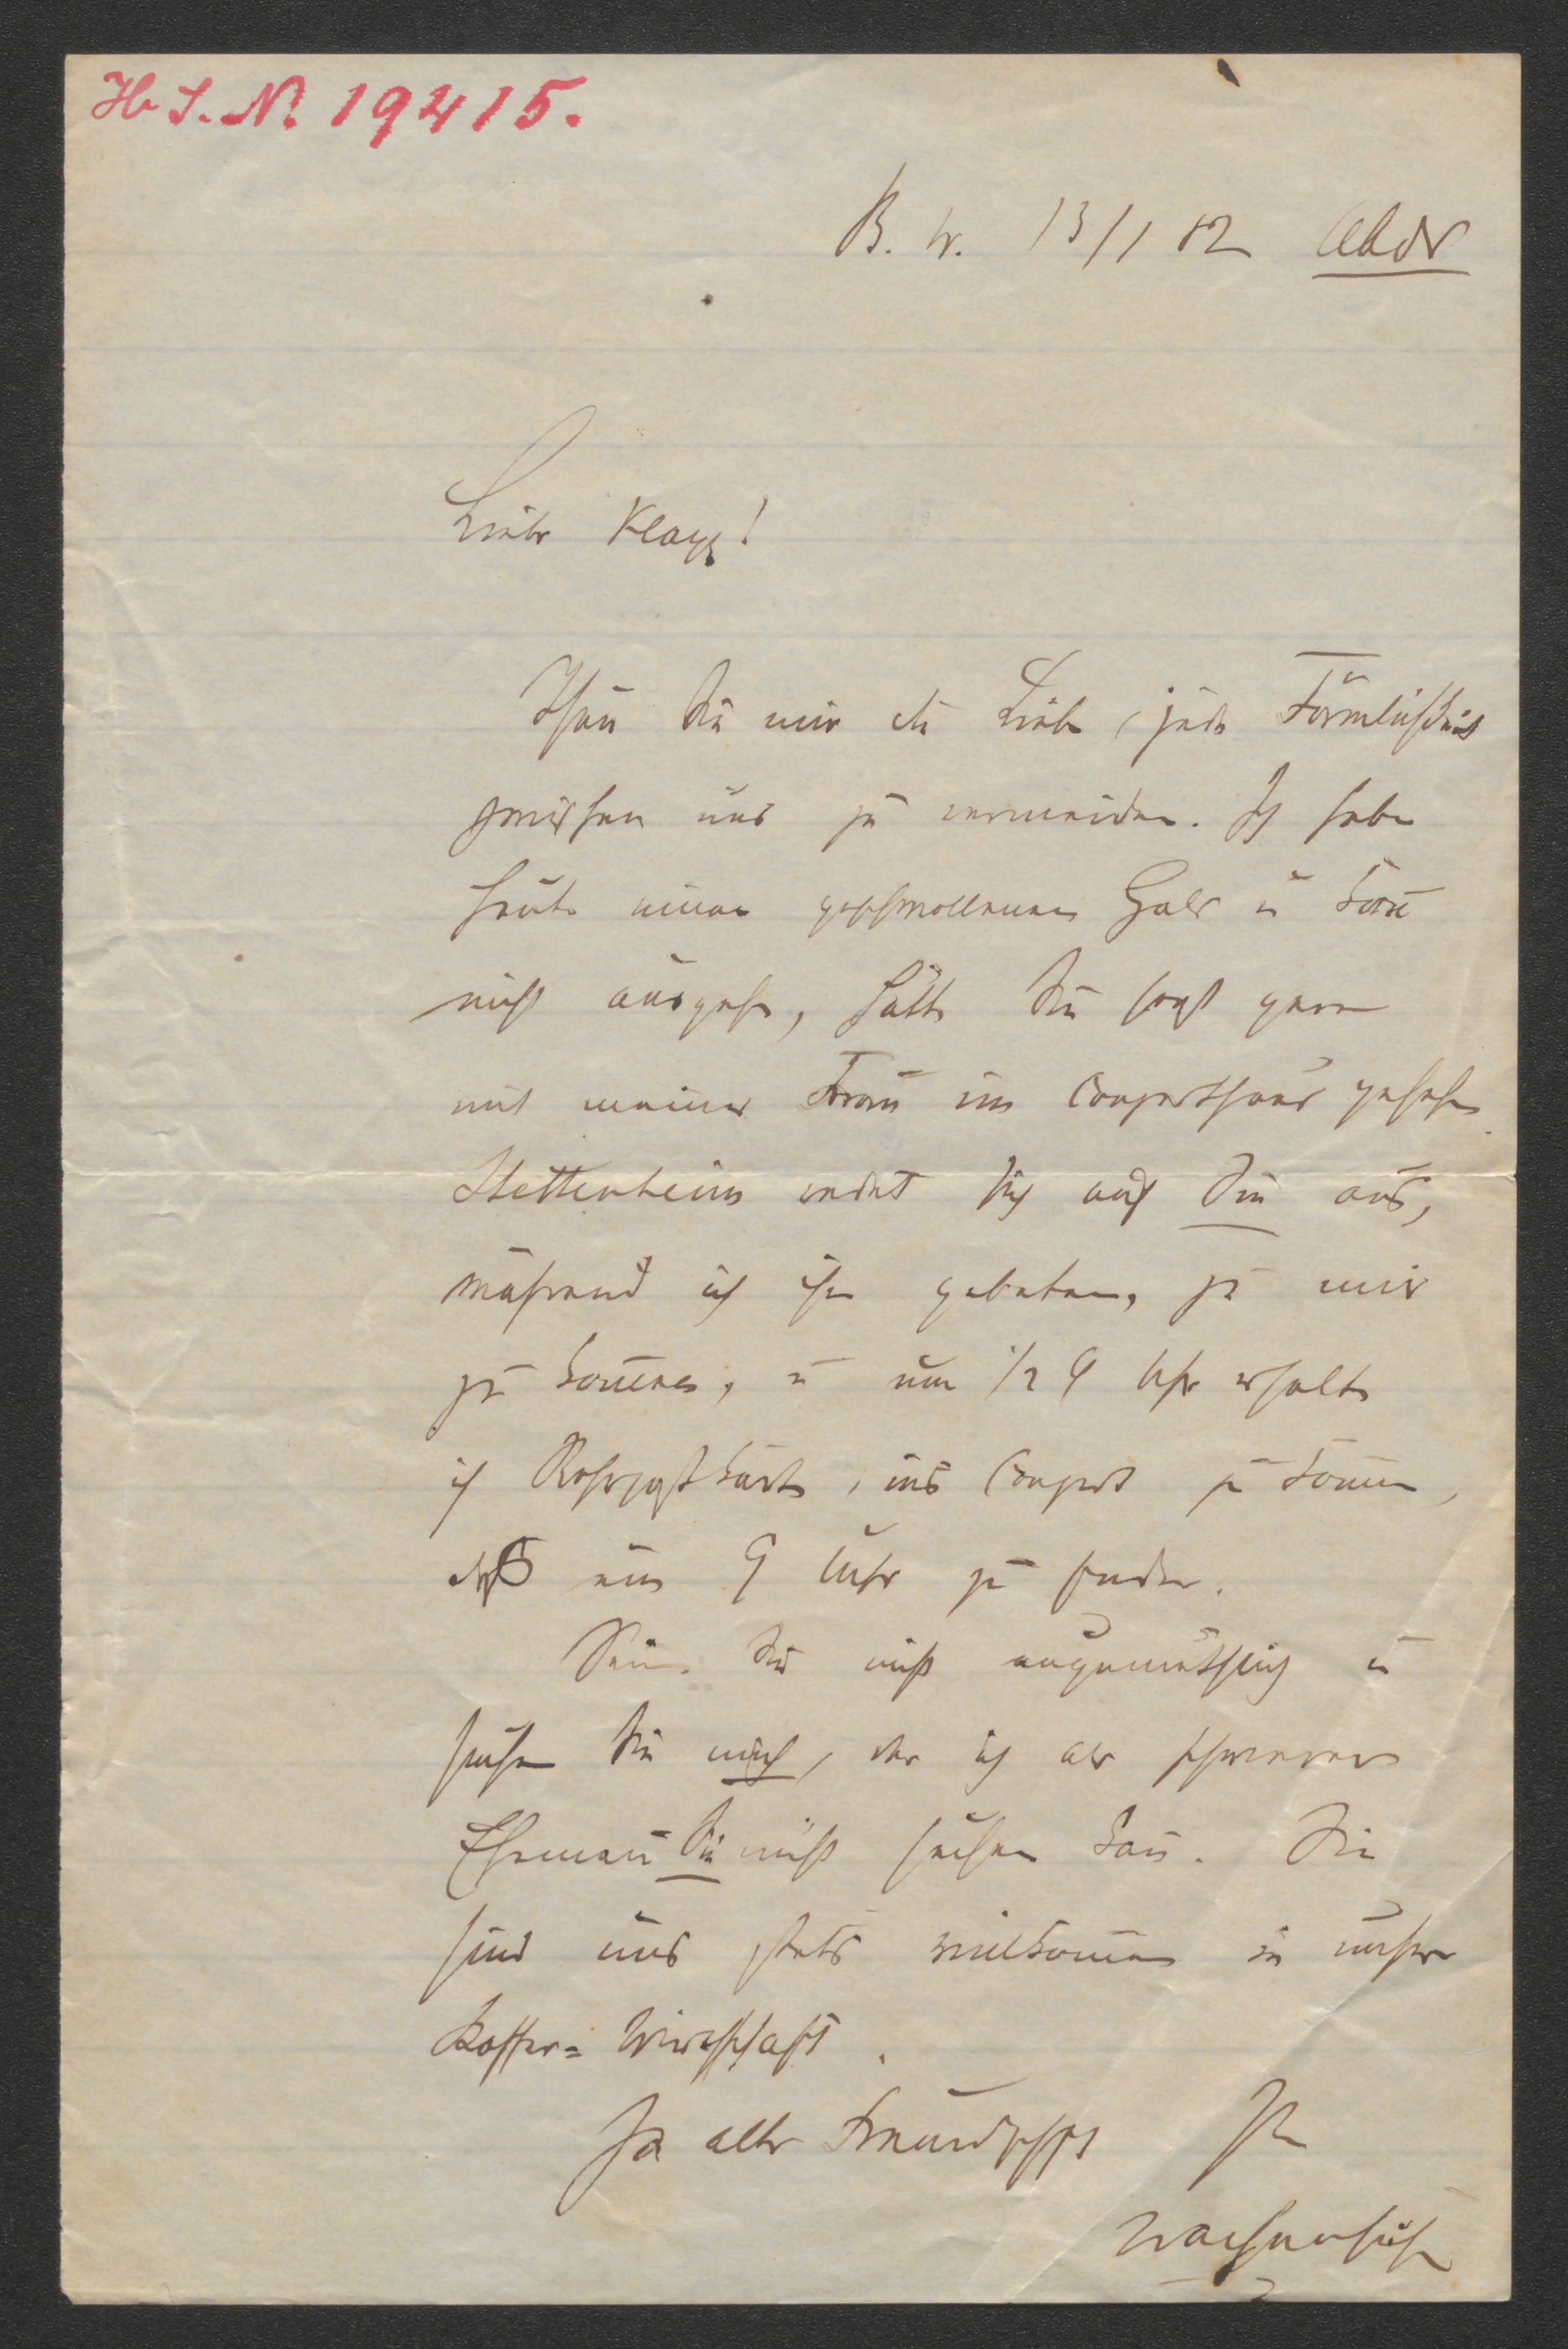 H. I. N. 19415.
B. W. 13/1 82 Abds
Lieber Klapp!
Thun Sie mir die Liebe, jede Förmlichkeit
zwischen uns zu vermeiden. Ich habe
heute einen geschwollenen Hals u kann
nicht ausgehn, hätte Sie sonst gern
mit meiner Frau im Concerthaus gesehen
Stettenheim redet sich auf Sie aus,
während ich ihn gebeten, zu mir
zu kommen, u um 1/2 9 Uhr erhalte
ich Rohrpostkarte, ins Concert zu kommen,
um 9 Uhr zu finden.
Seien Sie nicht ungemüthlich u
suchen Sie mich, der ich als schwerer
Ehemann Sie nicht suchen kann. Sie
sind uns stets willkommen in unserer
Koffer=Wirthschaft.
In alter Freundschft Ihr
Wachenhusen